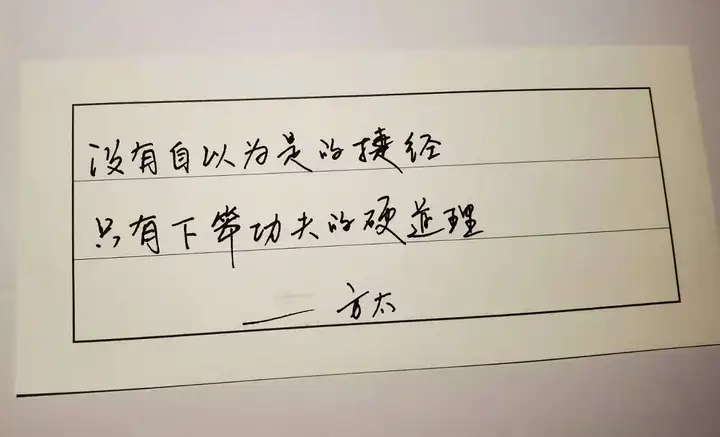 没有自以为是的捷经
只有下笨功夫的硬道理
—— 方太